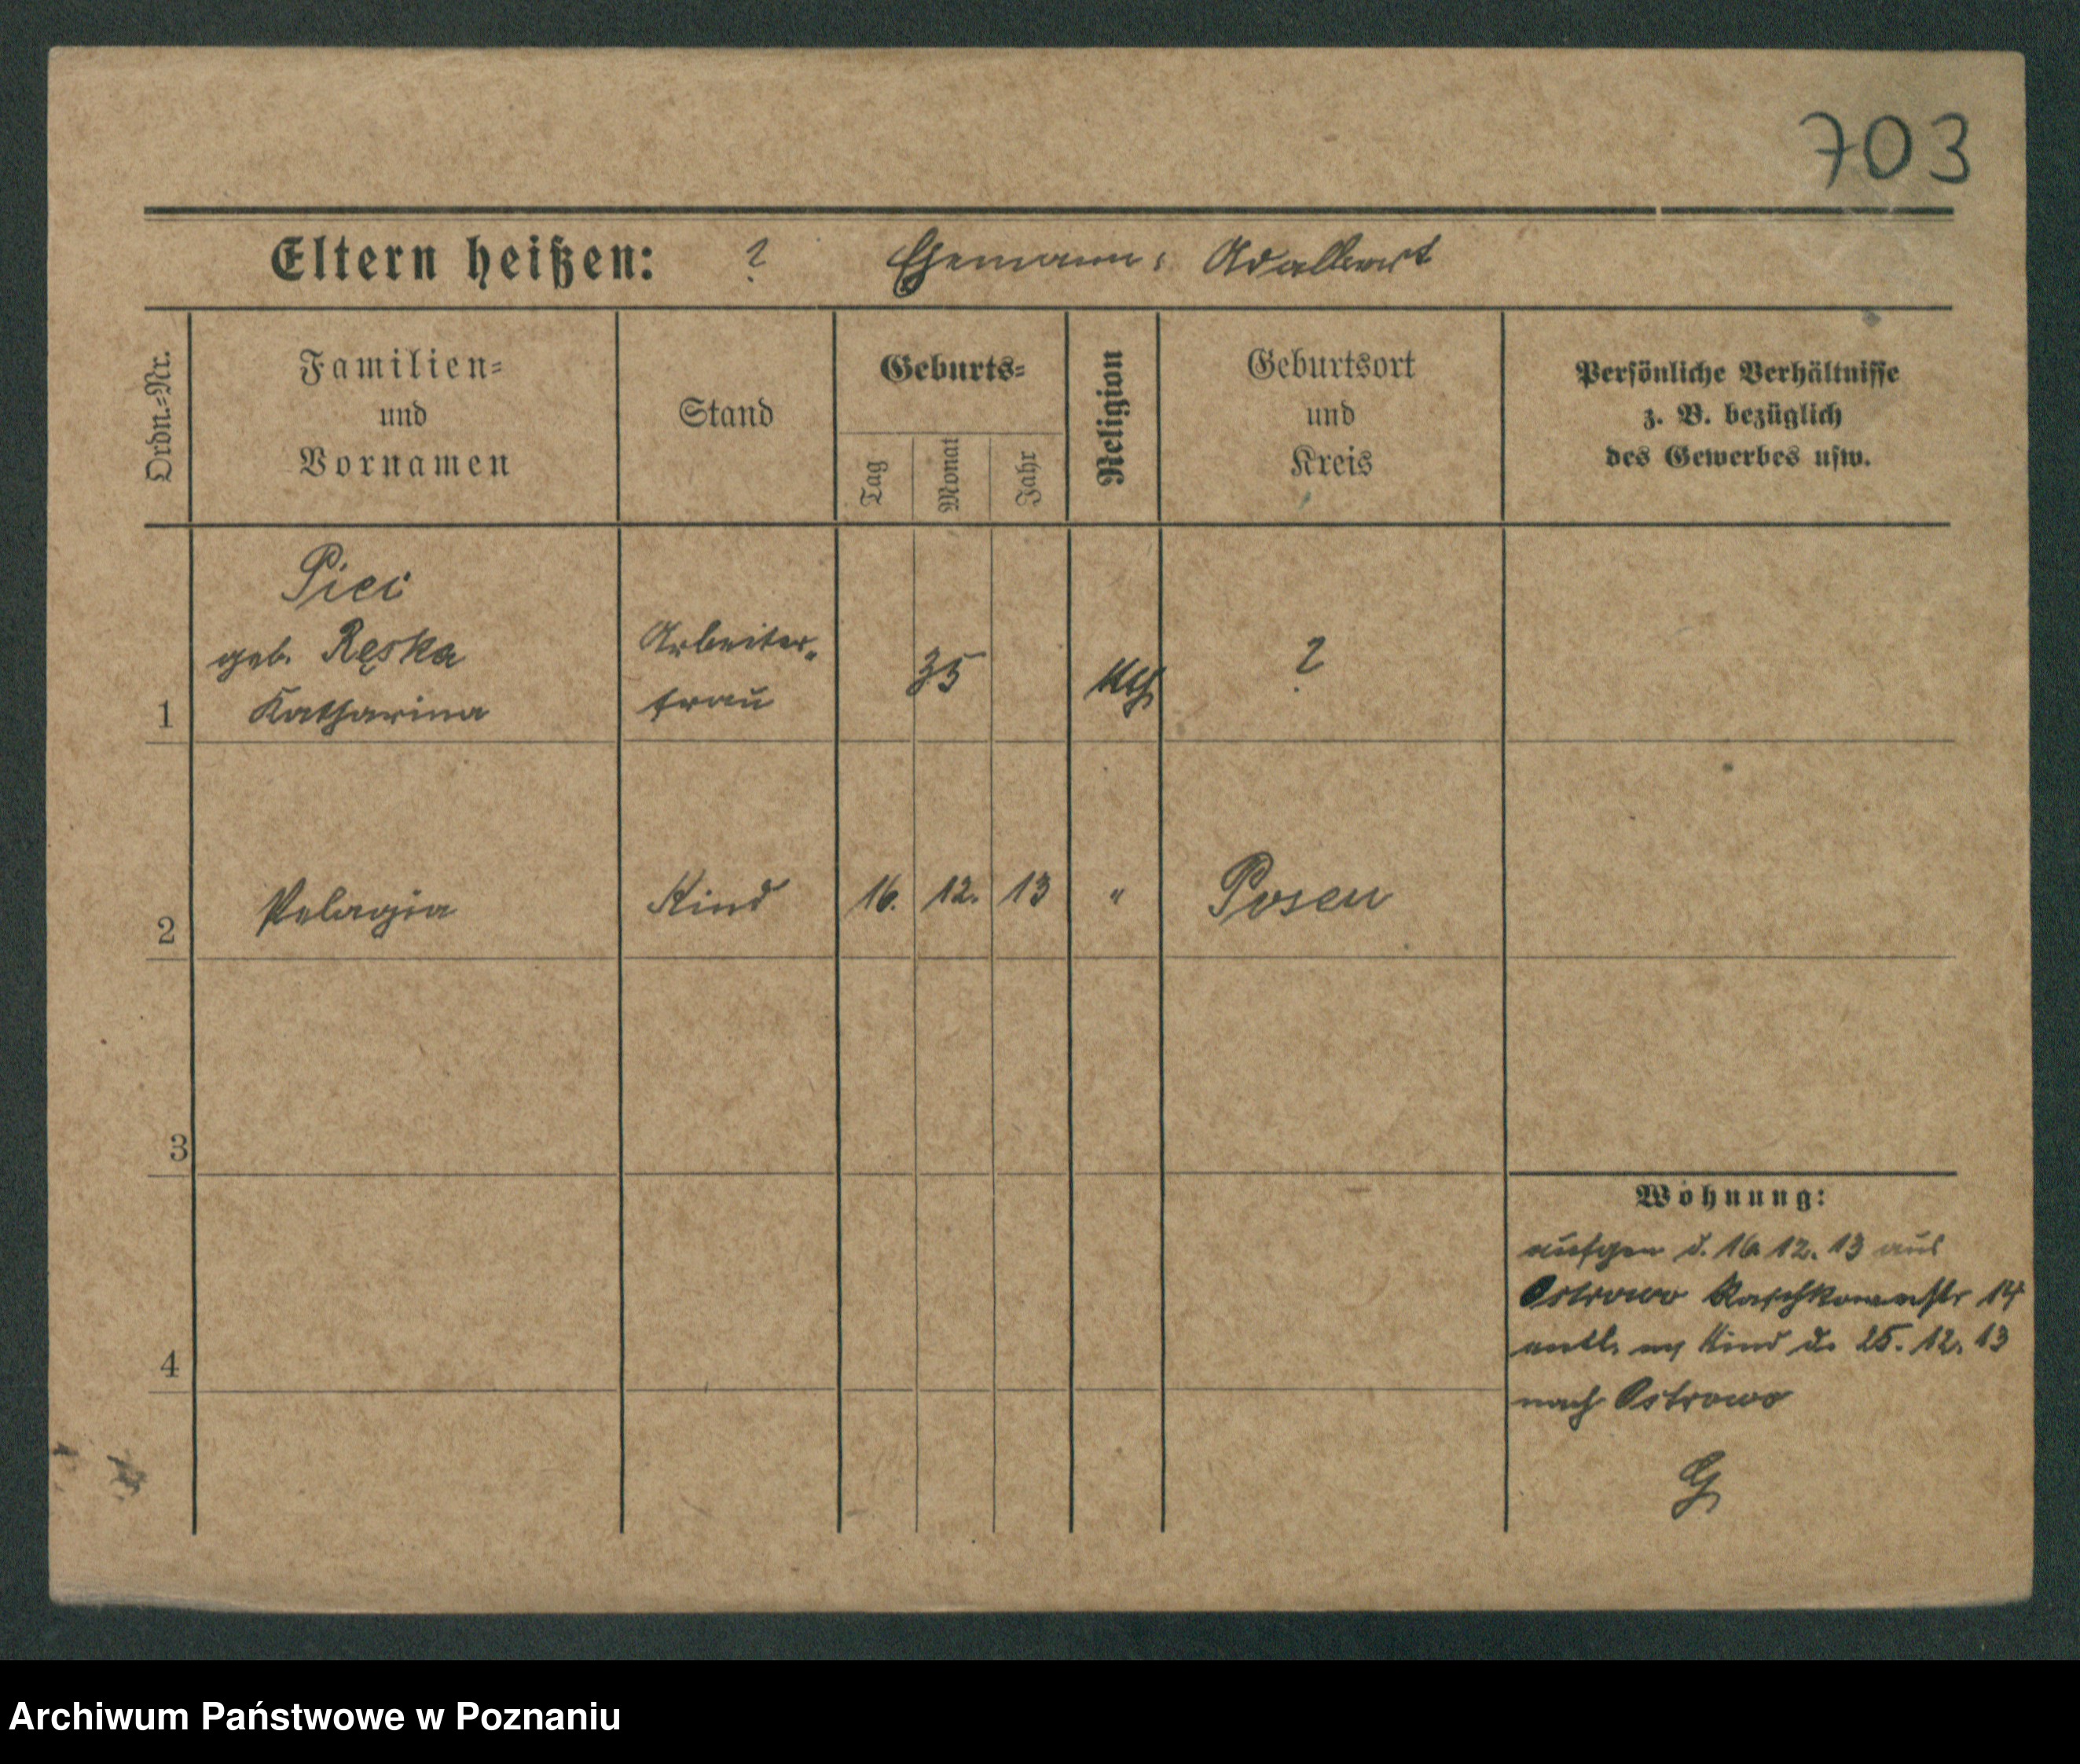 703
Eltern heißen: ? Ehemann: Adalbert
Ordn.-Nr.
Familien-
und
Vornamen
Stand
Geburts-
Tag
Monat
Jahr
Religion
Geburtsort
und
Kreis
Persönliche Verhältnisse
z. B. bezüglich
des Gewerbes usw.
Pieci
geb. Ręska
Katharina
Arbeiter-
frau
35
kth
?
1
Pelagia
Kind
16. 12. 13
"
Posen
2
3
4
Wohnung:
aufgen d. 16 12. 13 aus
Ostrowo Raschkowerstr 14
entl. Kind d. 25. 12. 13
nach Ostrowo
G
Archiwum Państwowe w Poznaniu